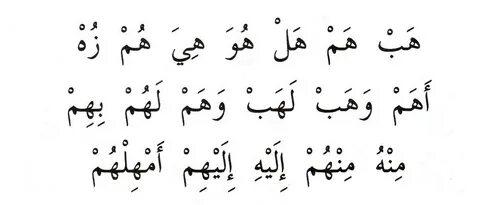 هَبْ هَمْ هَلْ هُوَ هِيَ هُمْ زُهْ
أَهَمْ وَهَبْ لَهَبْ وَهَمْ لَهُمْ بِهِمْ
مِنْهُ مِنْهُمْ إِلَيْهِ إِلَيْهِمْ أَمْهِلْهُمْ